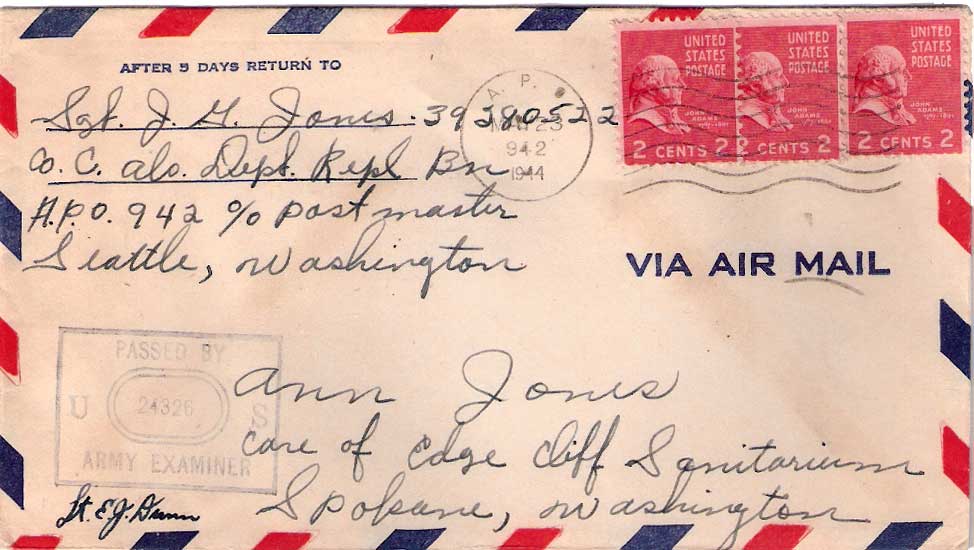 AFTER 5 DAYS RETURN TO
Sgt. J. G. Jones. 39380522
Co. C. Depl. Repl Bn
A.P.O. 942 % Postmaster
Seattle, Washington
A. P.
MAY 23
942
1944
UNITED STATES POSTAGE
JOHN ADAMS
2 CENTS 2
UNITED STATES POSTAGE
JOHN ADAMS
2 CENTS 2
UNITED STATES POSTAGE
JOHN ADAMS
2 CENTS 2
VIA AIR MAIL
PASSED BY
U 24326 S
ARMY EXAMINER
Ann Jones
Care of Edge Cliff Sanitarium
Spokane, Washington
Lt. E.J.